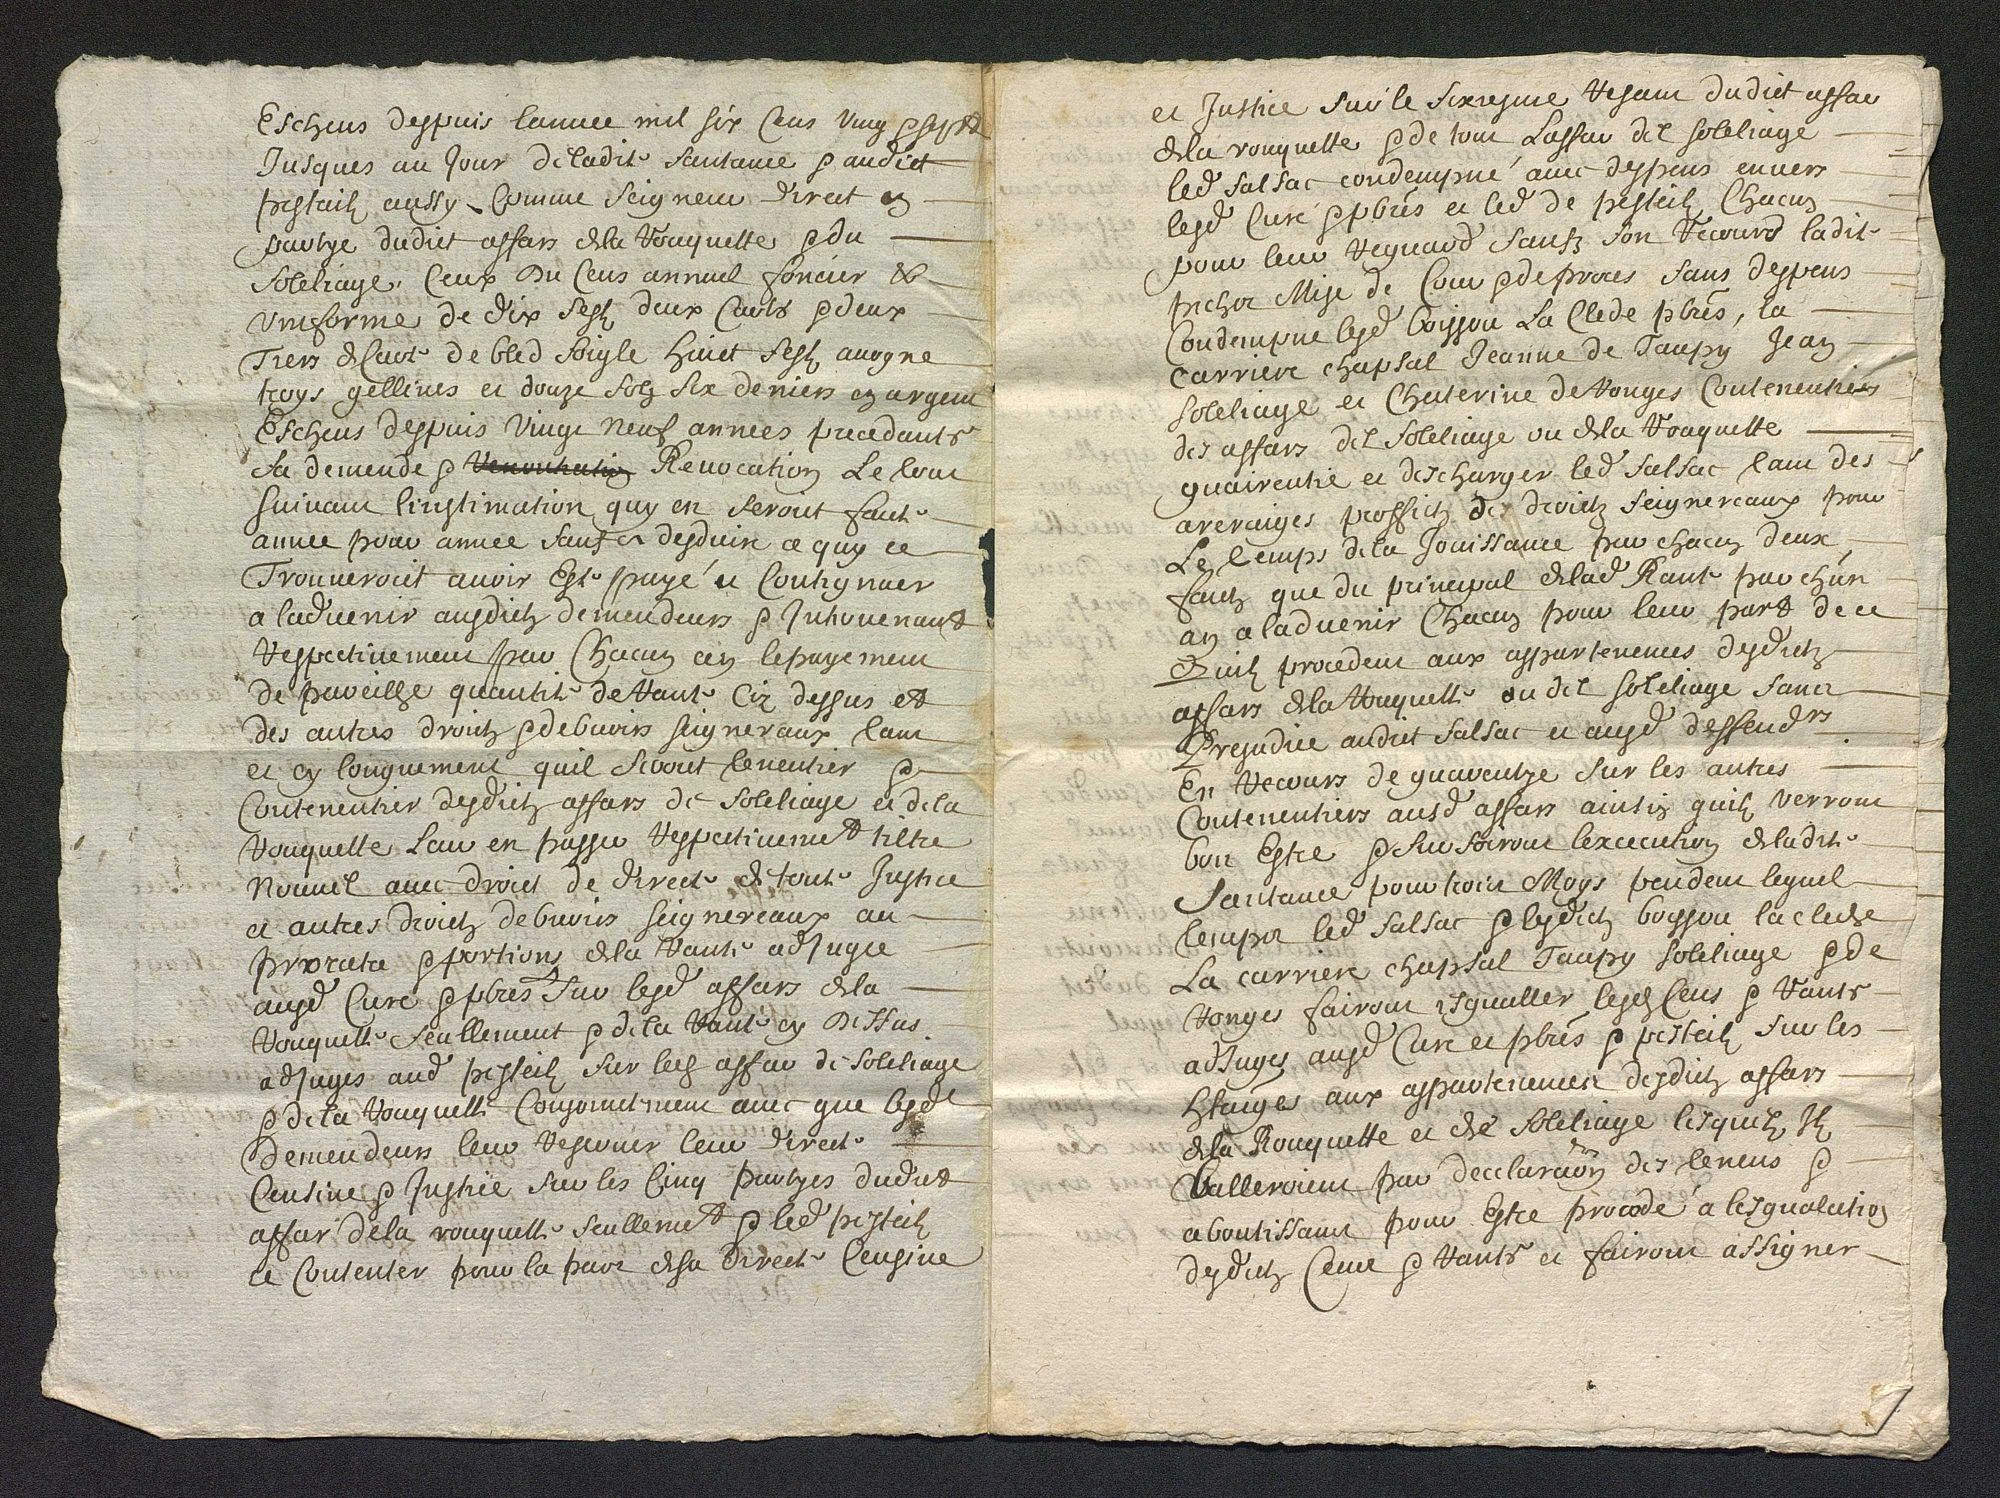 Escheus despuis lannee mil six Cens Vingt & sept
Jusques au Jour de ladite Santance & audict
pesteilz aussy Comme seigneur direct en
partye dudict affars de la Rouquette & du
Soleliage, Ceux Du Cens annuel foncier &
Uniforme de dix sestz deux Carts & deux
Tiers de Cart de bled soigle huict sestz avoyne
troys gellines et douze solz six deniers en argent
Escheus despuis Vingt neuf années precedants
Sa demende & Revocation Le tout
suivant linstimation quy en seroit faicte
annee pour annee sauf a desduire ce quy ce
Trouveroit avoir Esté payé et Contignuer
a ladvenir ausdictz demendeurs & Intrevenant
Respectivement par Chacun an le payement
de pareilhe quantité de Rante Cy dessus et
des autres droictz & debvoirs seigneraux tant
et cy longuement quil seront tenentier &
Contenentier desdictz affars de Soleliage et de la
Rouquette Leur en passer Respectivement tiltre
Nouvel avec droict de directe et toute Justice
et autres droictz debvoirs seignereaux au
prorata & portions de la Rante adJugee
ausd Curé & pbres sur lesd affars de la
Rouquette seullement & de la Rante cy Dessus
adjuges aud pesteilz sur lesd affar de Soleliage
& de la Rouquette Conjointement avec que lesd
Demendeurs leur Reserver leur directe
Censive & Justice sur les Cinq partyes dudict
affar de la rouquette seullement & led pesteilz
ce Contenter pour la part de sa directe Censive
et Justice sur le sixiesme Resant dudict affar
de la rouquette & de tout Laffar del soleliage
led Salsac condempné avec despens envers
lesd Curé & pbres et led de pesteilz Chacun
pour leur Reguard saufz son Recours ladite
pichot Mise de Cour & de proces sans despens
Condempne lesd boissou La Clede pbres, la
Carriere chapsal Jeanne de Taupy Jean
Soleliage et Chaterine de Ronges Contenentiers
des affars del Soleliage ou de la Rouquette
guairentir et descharger led Salsac tant des
areraiges proffictz des droictz seignereaux pour
Le temps de la Jouissance par chacun deux
faicte que du principal de lad Rante par chun
an a ladvenir Chacun pour leur part de ce
Quilz procedent aux appartenences desdictz
affars de la Rouquette ou del soleliage sans
Prejudice audict Salsac et ausd deffendrs
En Recours de guarentye sur les autres
Contenentiers ausd affars ainsin quilz verront
bon Estre & surssoiront lexecution de ladite
Santance pour trois Moys pendent lequel
temps led Salsac & lesdictz boyssou la clede
La carriere chapsal Taupy soleliage & de
Ronges fairont esgualler lesd Cens & Rants
adJuges ausd Cure et pbres & pesteilz sur les
heritages aux appartenences desdictz affars
de la Rouquette et de Soleliage lesquelz Ilz
balleroient par decclaration des tenens &
aboutissant pour Estre procedé a lesgualation
desdictz Cens & Rants et fairont assigner